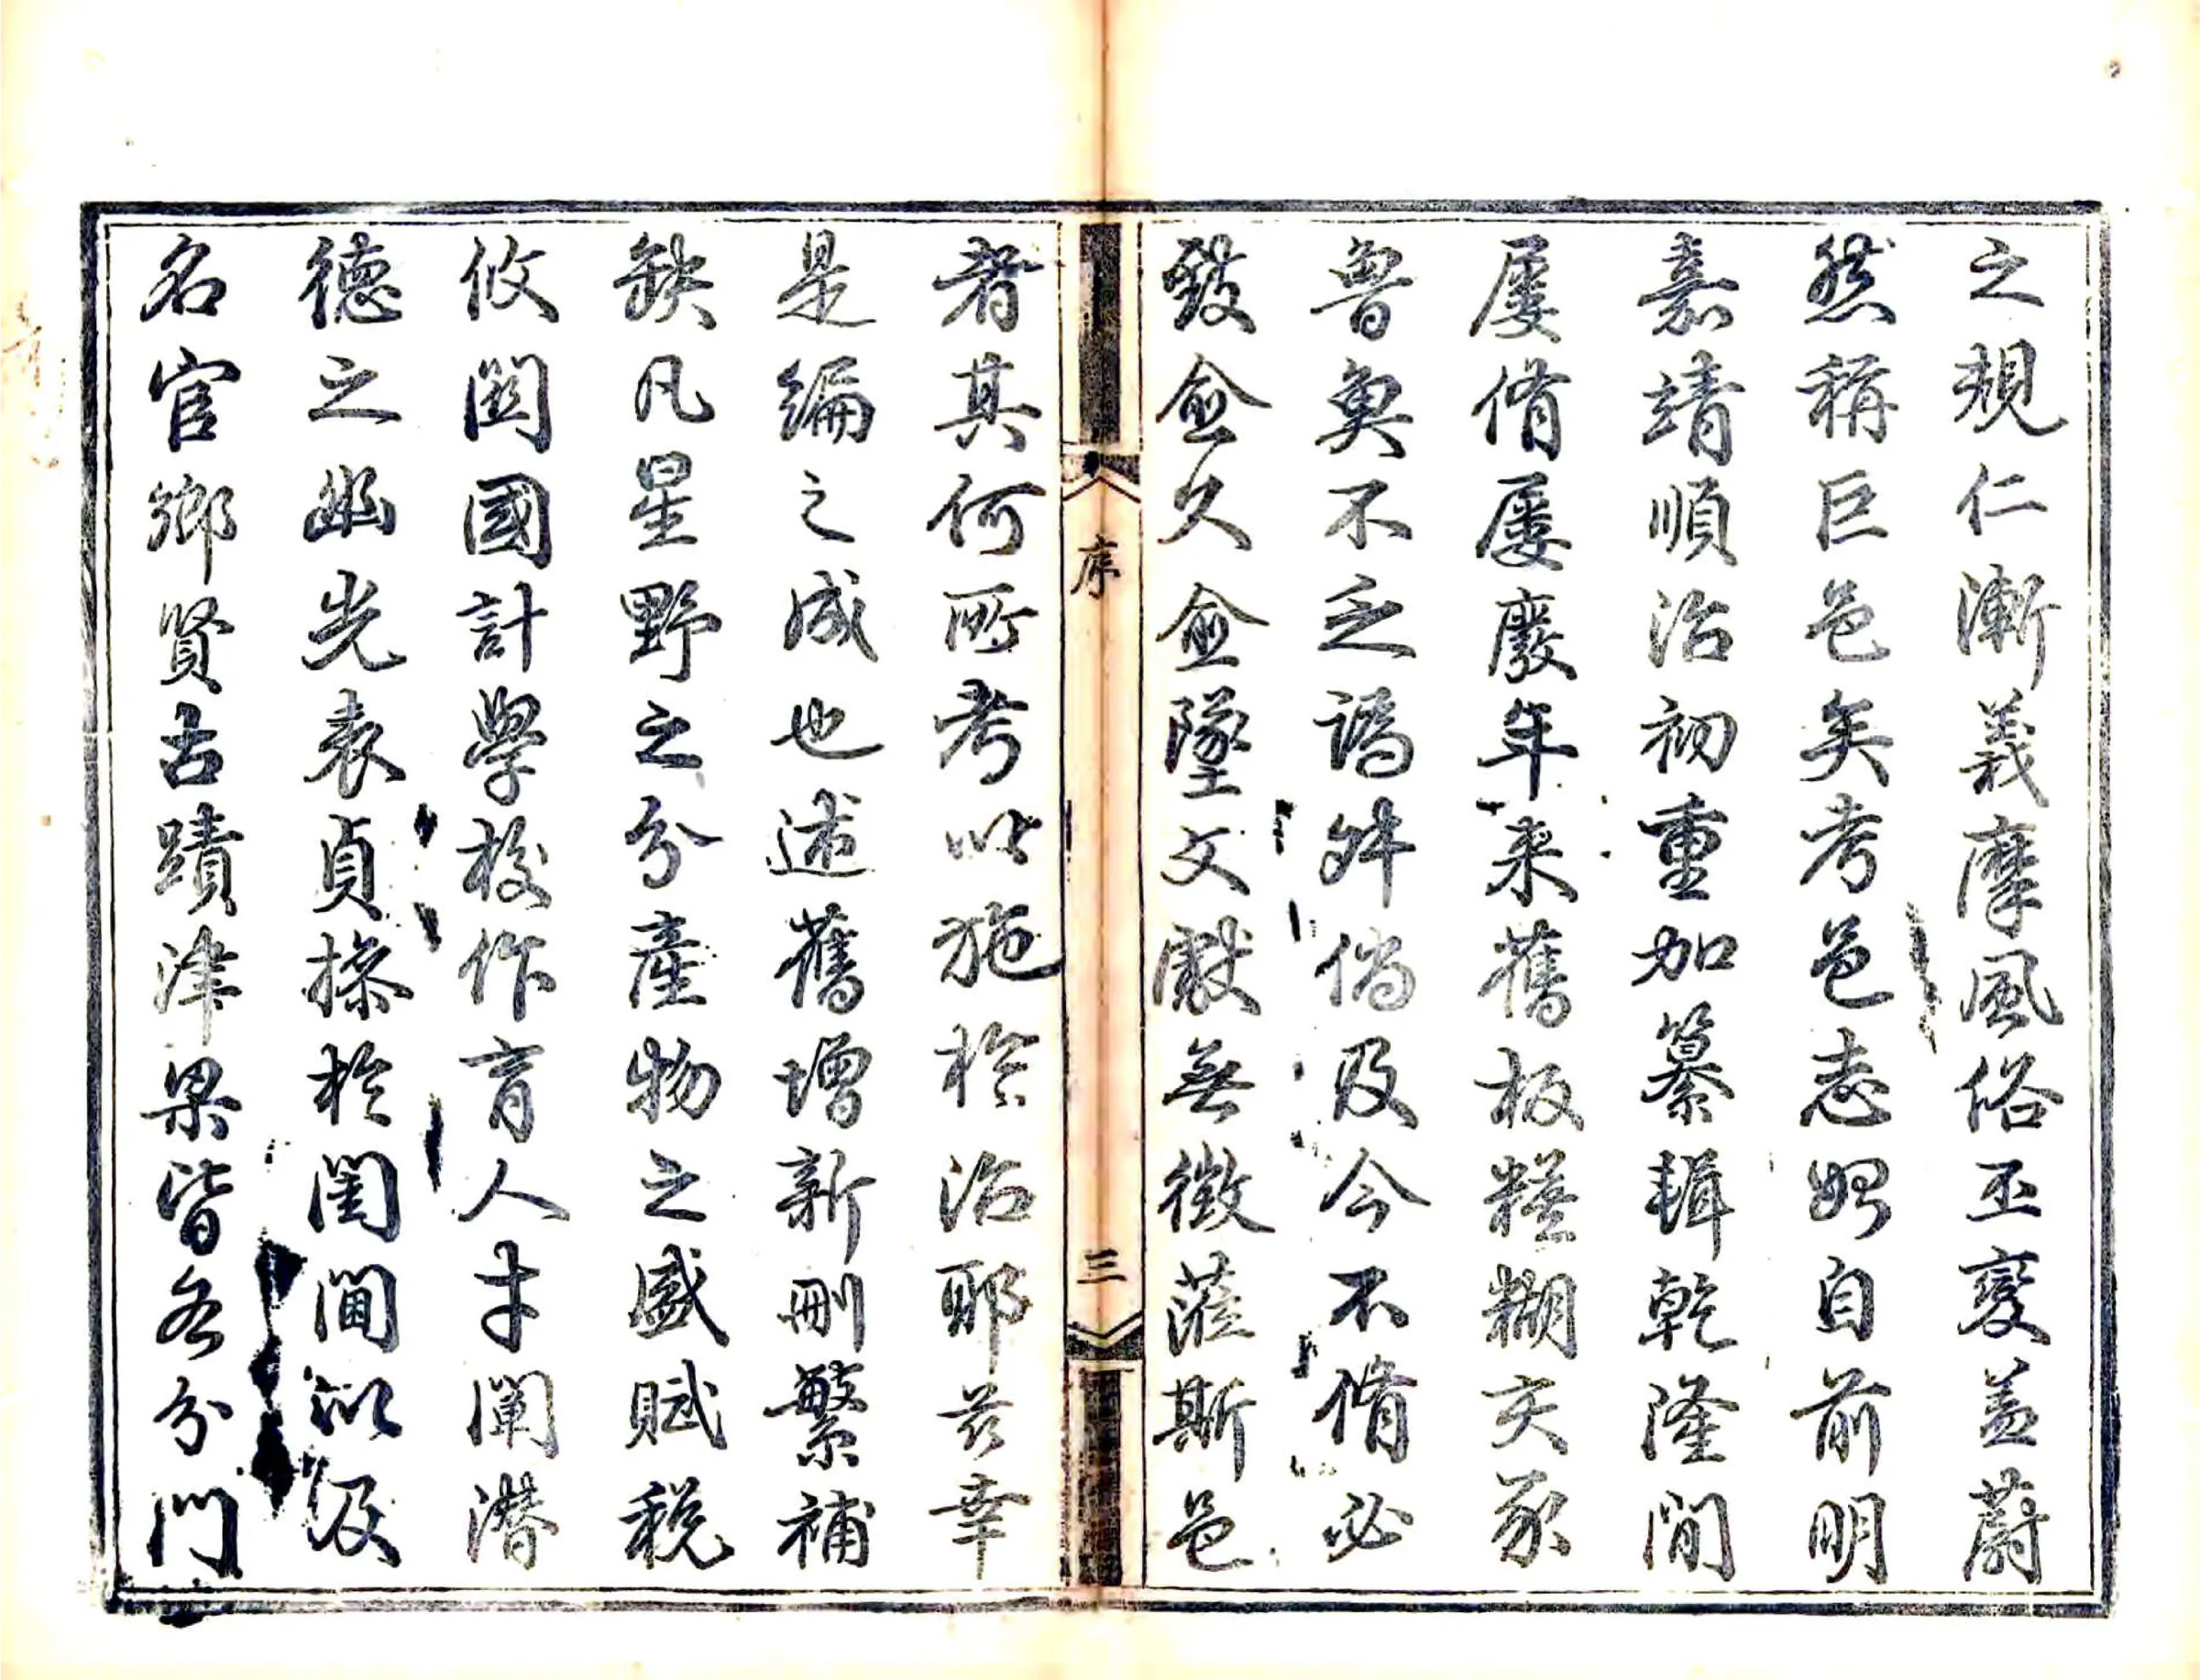 之規仁漸義摩風俗丕變蓋蔚
然稱巨邑矣考邑志始自前明
嘉靖順治初重加纂輯乾隆間
屢脩屢廢年来舊板糢糊亥豕
魯魚不乏譌舛倘及今不脩必
致愈久愈墜文獻無徵蒞斯邑
序
三
者其何所考以施於治耶茲幸
是編之成也述舊增新刪繁補
缺凡星野之分產物之盛賦稅
攸関國計學校作育人才闡潛
德之幽光表貞操於閨閫以及
名官鄉賢古蹟津梁皆各分門